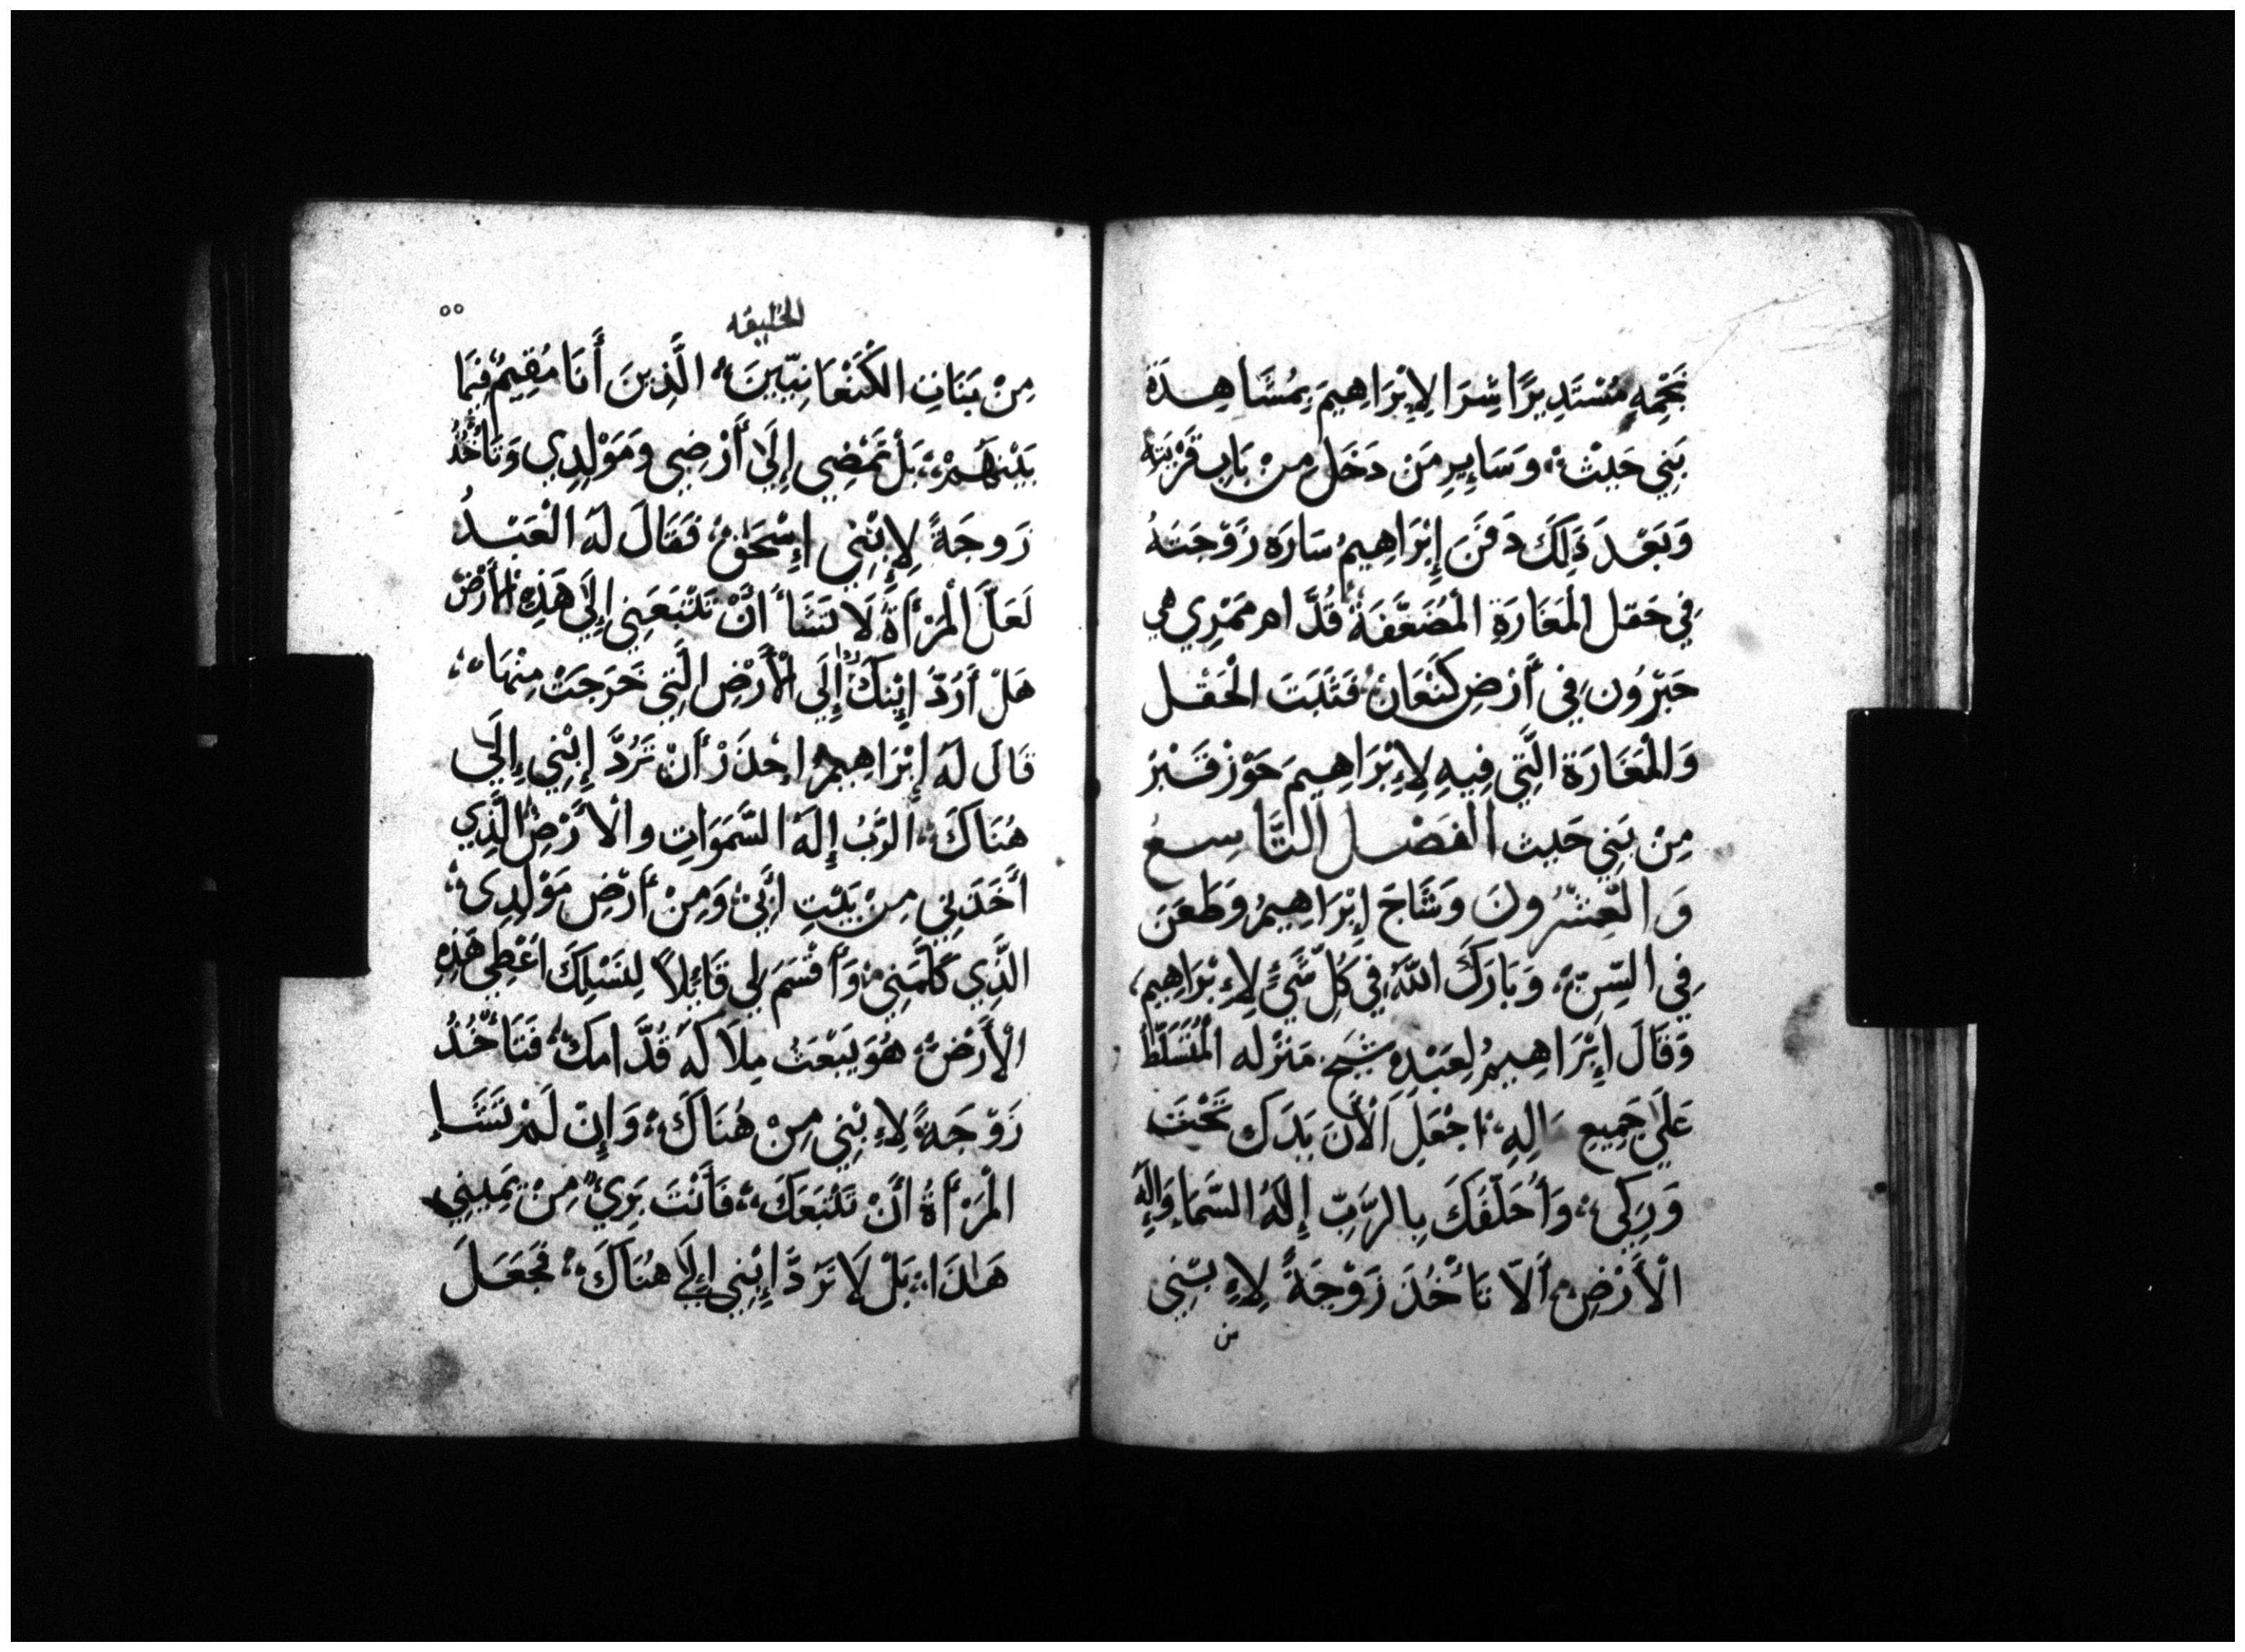 تَخْمِهِ مُسْتَدِيرًا شِرَا لِإِبْرَاهِيمَ بِمُشَاهِدَةِ
بَنِي حَيْثْ، وَسَايِرِ مَن دَخَل مِن بَابِ قَرْيَتِهِ
وَبَعْدَ ذَلِكَ دَفَنَ إِبْرَاهِيمُ سَارَه زَوْجَتَهُ
فِي حَقل الْمَغَارَةِ الْمُضَعَّفَةِ قُدَّام مَمْرِي هي
حَبْرُون فِي أَرْضِ كَنْعَانْ، فَثَبَتَ الْحَقْل
وَالْمَغَارَة الَّتِي فِيهِ لِإِبْرَاهِيمَ حَوْز قَبْرْ
مِنْ بَنِي حَيث الفَصْل التَّاسِعُ
وَالْعِشْرُونَ وَشَاخَ إِبْرَاهِيمُ وَطَعَنَ
فِي السِّنّْ، وَبَارَكَ اللَّهُ فِي كُلِّ شَيْءٍ لِإِبْرَاهِيم،
وَقَالَ إِبْرَاهِيمُ لِعَبْدِهِ شَيخ مَنْزِله الْمُتَسَلِّطْ
عَلَى جَمِيعِ مَالِهِ، اجْعَلِ الْأَنَ يَدَك تَحْتَ
وَرِكِي، وَأُحَلِّفَكَ بِالرَّبِّ إِلَهُ السَّمَاءِ وَإِلَهِ
الْأَرْضِ، أَلَّا تَأْخُذَ زَوْجَةً لِإِبْنِي
من
الخليقه
٥٥
مِنْ بَنَاتِ الْكَنْعَانِيِّينَ، الَّذِينَ أَنَا مُقِيمٌ فِيمَا
بَيْنَهُمْ، بَلْ تَمْضِي إِلَى أَرْضِي وَمَوْلِدِي وَتَأْخُذُ
زَوجَةً لِإِبْنِي إِسْحَقْ، فَقَالَ لَهُ الْعَبْدُ
لَعَلَّ الْمَرْأَةَ لَا تَشَاءُ أَنْ تَتْبَعَنِي إِلَى هَذِهِ الْأَرْضْ
هَلْ أَرُدّ إِبْنَكَ إِلَى الْأَرْضِ الَّتِي خَرَجَتْ مِنْهَا،
قَالَ لَهُ إِبْرَاهِيمُ احْذَرْ أَنْ تَرُدَّ إِبْنِي إِلَى
هُنَاكَ، الرَّبُّ إِلَهُ السَّمَوَاتِ وَالْأَرْضِ الَّذِي
أَخَذَنِي مِنْ بَيْتِ أَبِي، وَمِنْ أَرْضِ مَوْلِدِي،
الَّذِي كَلَّمَنِي، وَأَقْسَمَ لِي قَائِلًا لِنَسْلِكَ اعْطِي هَذِهِ
الْأَرْضْ، هُوَ يَبْعَثُ مَلَاكَهُ قُدَّامَكَ، فَتَأْخُذُ
زَوْجَةً لِإِبْنِي مِنْ هُنَاكَ، وَإِنْ لَمْ تَشَاءِ
الْمَرْأَةُ أَنْ تَتْبَعَكَ، فَأَنْتَ بَرِيءٌ مِنْ يَمِينِي
هَاذَا، بَلْ لَا تَرُدَّ إِبْنِي إِلَى هُنَاكَ، فَجَعَلَ